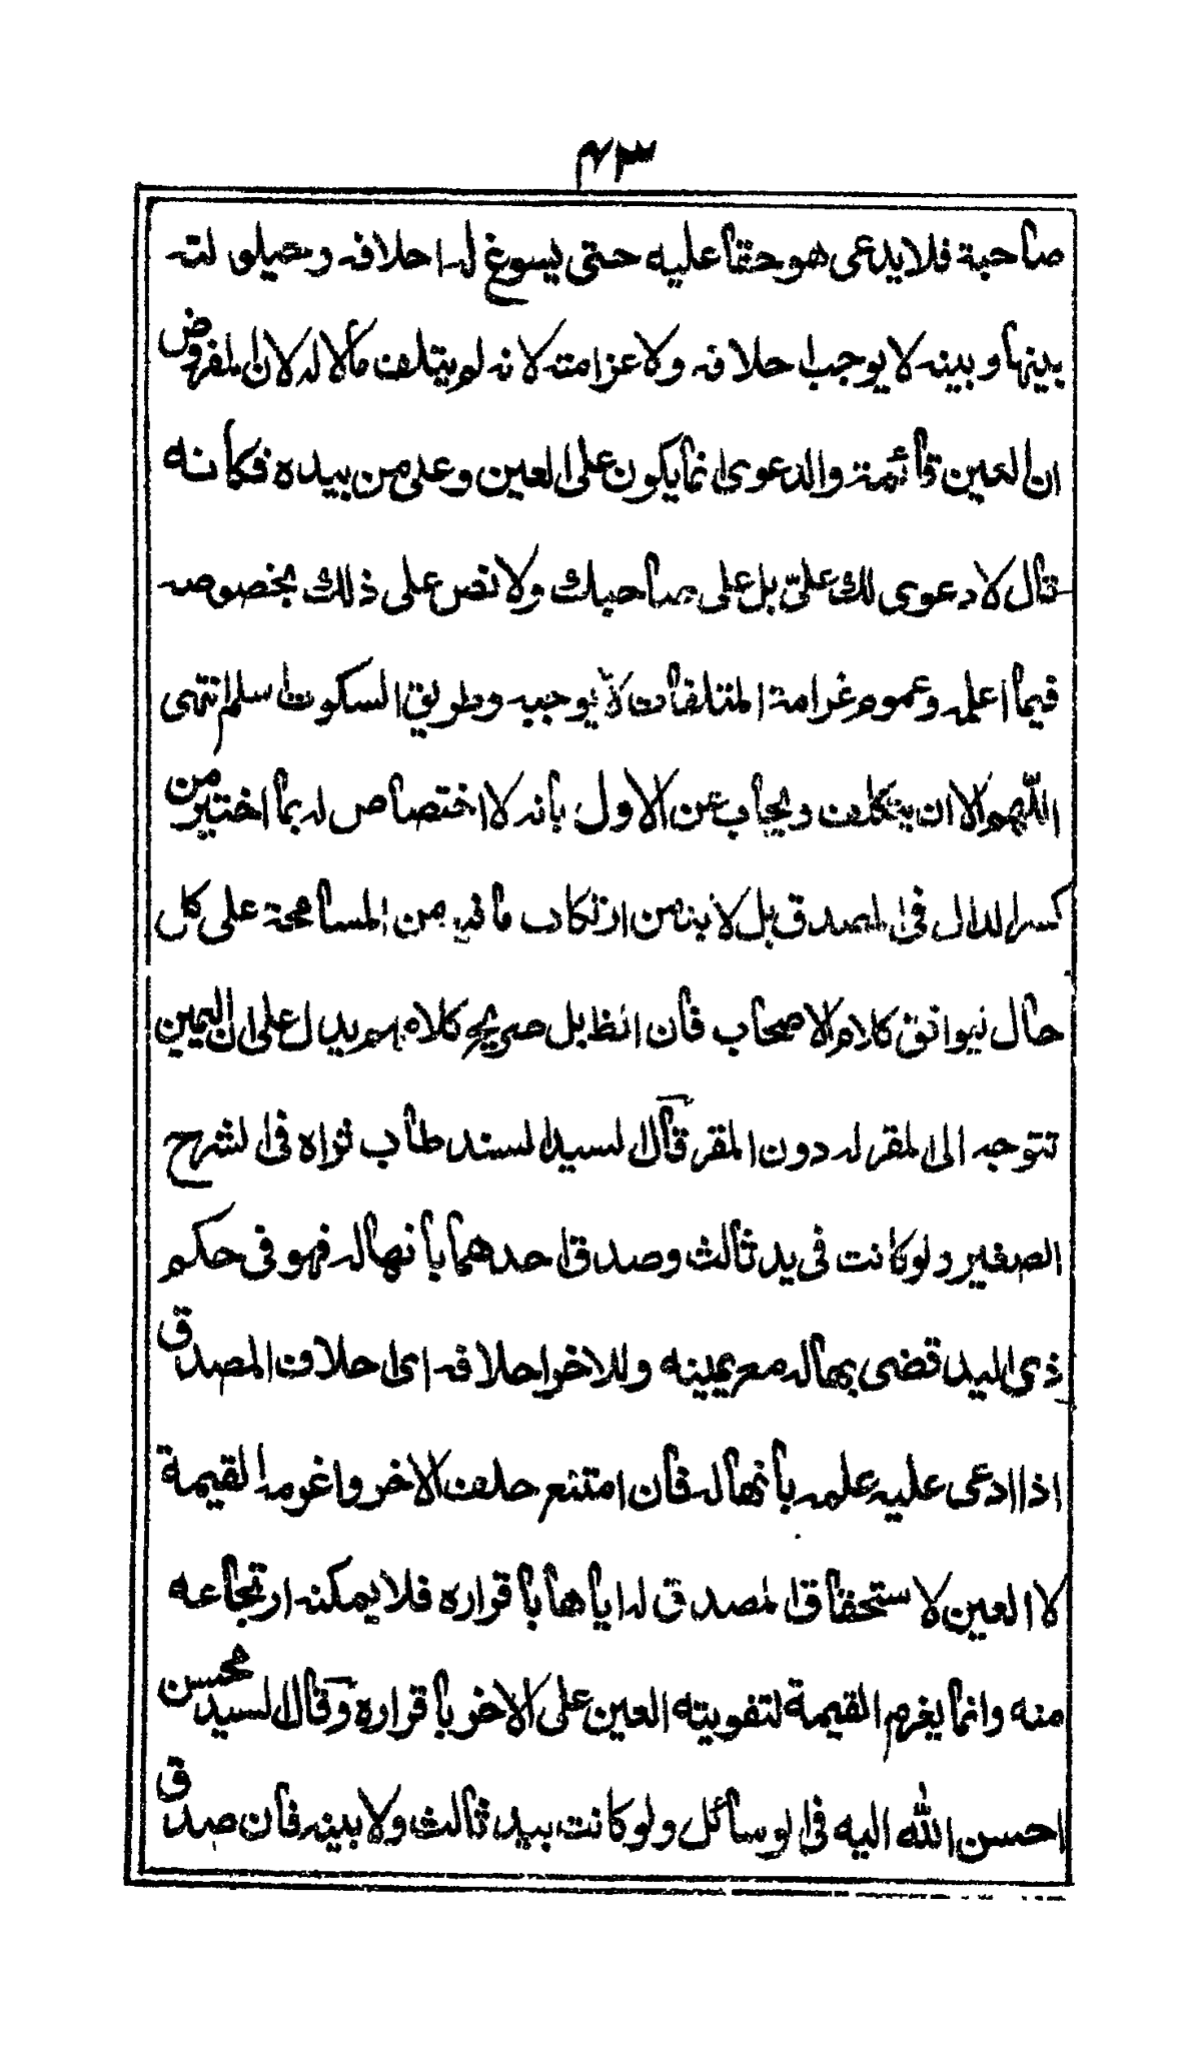 ۴۳
صاحبة فلا يدعى هو حقا عليه حتى يسوغ له احلافه وحيلولته
بينها وبينه لا يوجب احلافه ولا غرامته لانه لم يتلف مالا له لان المفروض
ان العين قائمة والدعوى انما يكون على العين وعلى من بيده فكانه
قال لا دعوى لك علىّ بل على صاحبك ولا نص على ذلك بخصوصه
فيما اعلم وعموم غرامة المتلفات لا يوجبه وطريق السكوت اسلم انتهى
اللّهم الا ان يتكلف ويجاب عن الاول بانه لا اختصاص له بما اختير من
كسر الدال فى المصدق بل لا بد من ارتكاب ما فيه من المسامحة على كل
حال ليوافق كلام الاصحاب فان الظ بل صريح كلامهم يدل على ان اليمين
تتوجه الى المقر له دون المقر قال السيد السند طاب ثراه فى الشرح
الصغير ولو كانت فى يد ثالث وصدق احدهما بانها له فهو فى حكم
ذى اليد قضى بها له مع يمينه وللاخر احلافه اى احلاف المصدق
اذا ادعى عليه علمه بانها له فان امتنع حلف الاخر واغرمه القيمة
لا العين لاستحقاق المصدق له اياها باقراره فلا يمكنه ارتجاعه
منه وانما يغرم القيمة لتفويته العين على الاخر باقراره وقال السيد محسن
احسن الله اليه فى الوسائل ولو كانت بيد ثالث ولا بينه فان صدق